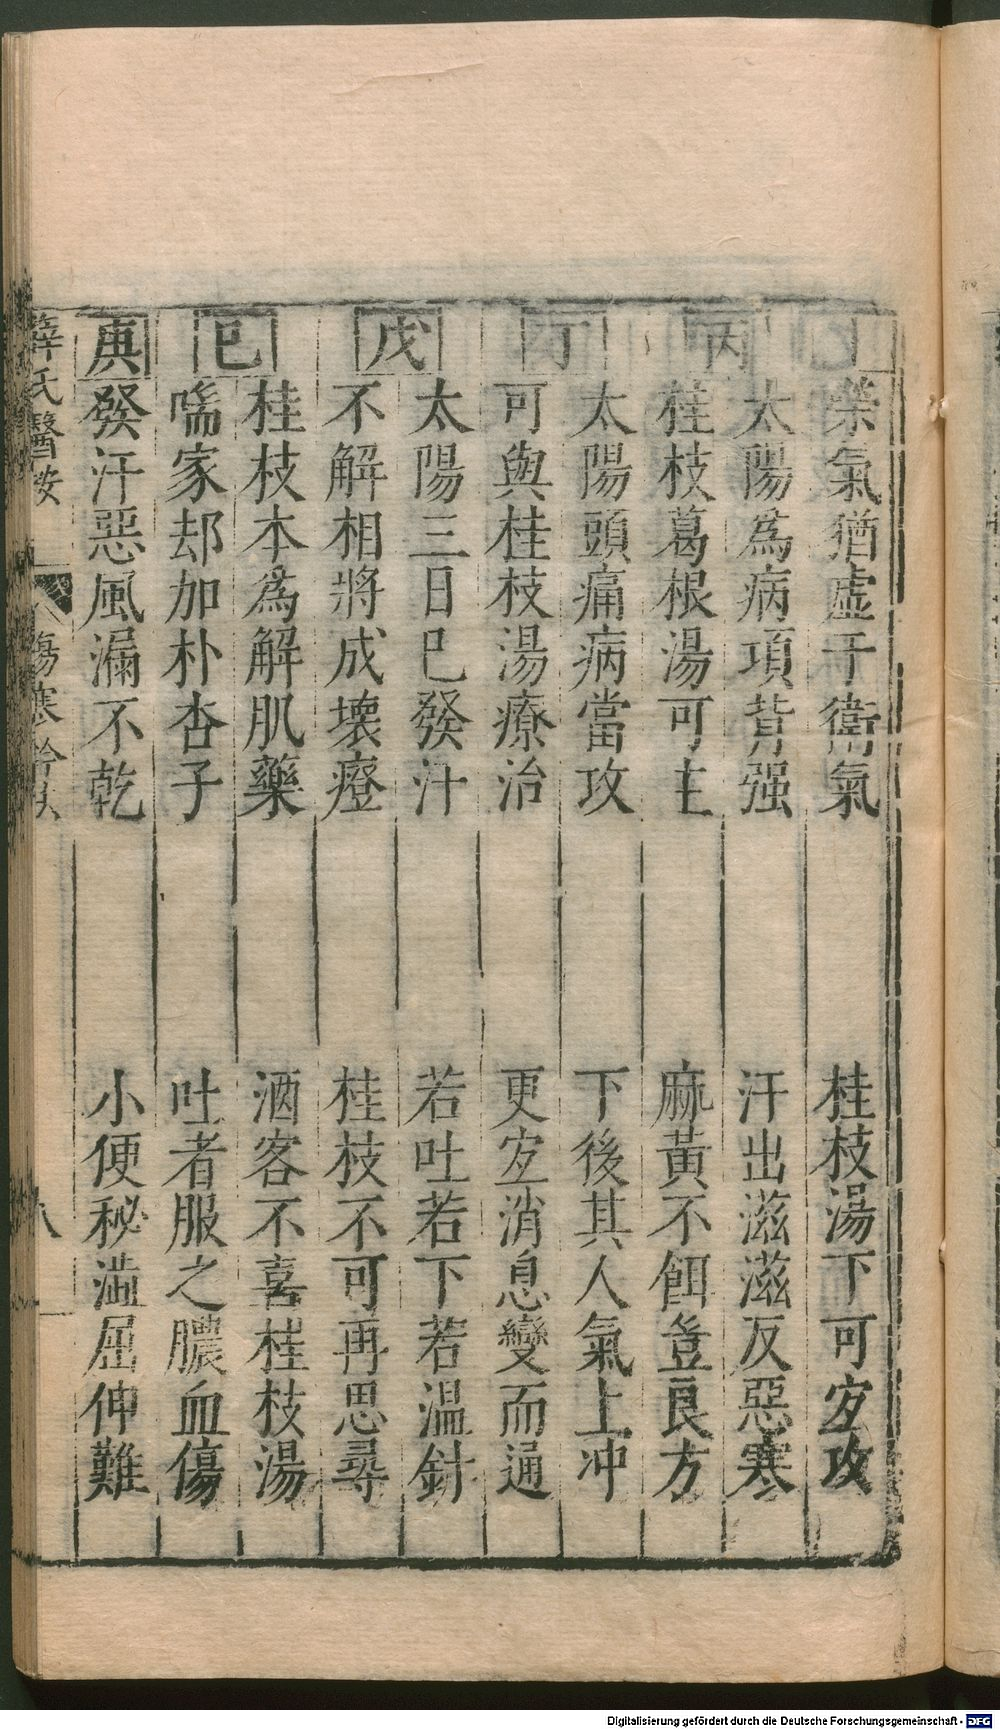 榮氣猶虛于衛氣　桂枝湯下可宐攻
太陽為病項背强　汗出滋滋反惡寒
丙
桂枝葛根湯可主　麻黃不餌豈良方
太陽頭痛病當攻　下後其人氣上冲
丁
可與桂枝湯療治　更宐消息變而通
太陽三日已發汗　若吐若下若温針
戊
不解相將成壞癥　桂枝不可再思尋
桂枝本為解肌藥　酒客不喜桂枝湯
己
喘家却加朴杏子　吐者服之膿血傷
庚
發汗惡風漏不乾　小便秘澁屈伸難
薛氏醫按　傷寒鈐法　八
Digitalisierung gefördert durch die Deutsche Forschungsgemeinschaft - DFG